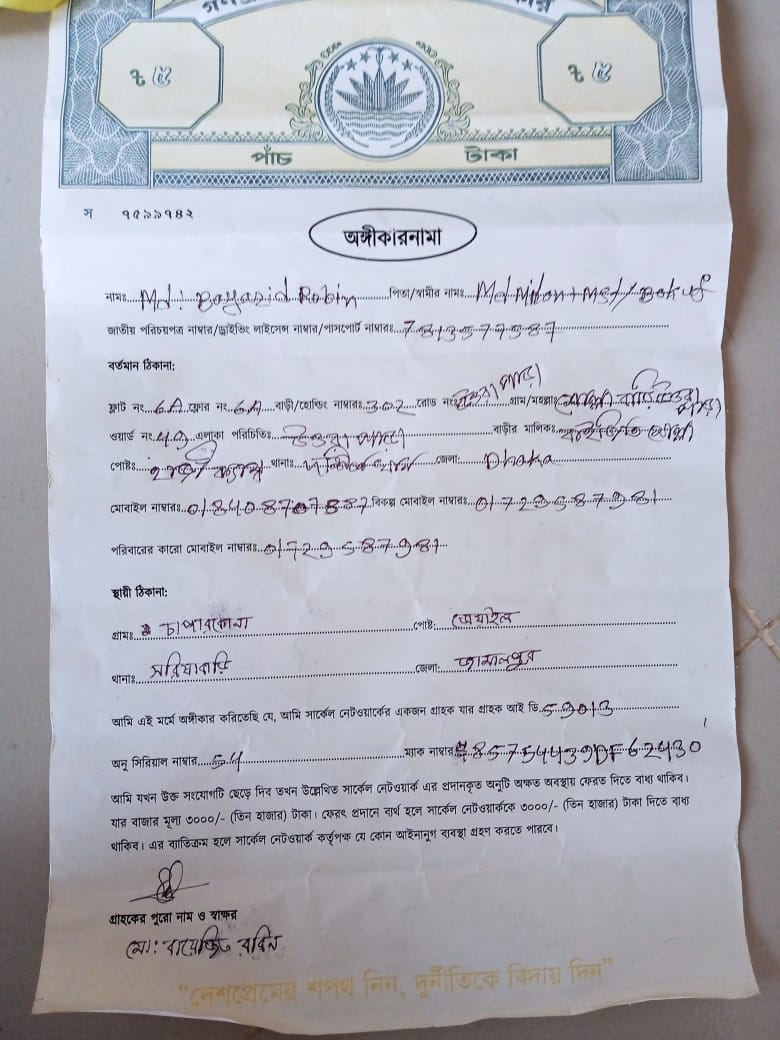 ৳ ৫ ৳ ৫
পাঁচ টাকা
স ৭৫৯৯৭৪২
অঙ্গীকারনামা
নামঃ Md: Bayazid Robin পিতা/স্বামীর নামঃ Md Milon
জাতীয় পরিচয়পত্র নাম্বার/ড্রাইভিং লাইসেন্স নাম্বার/পাসপোর্ট নাম্বারঃ
বর্তমান ঠিকানা:
ফ্লাট নং 6A ফ্লোর নং 6A বাড়ী/হোল্ডিং নাম্বারঃ 302 রোড নং গ্রাম/মহল্লা
ওয়ার্ড নং এলাকা পরিচিতিঃ বাড়ীর মালিকঃ
পোষ্টঃ থানাঃ জেলা: Dhaka
মোবাইল নাম্বারঃ 01840870788 বিকল্প মোবাইল নাম্বারঃ
পরিবারের কারো মোবাইল নাম্বারঃ
স্থায়ী ঠিকানা:
গ্রামঃ চাপারকোনা পোষ্ট:
থানাঃ সরিষাবাড়ি জেলা: জামালপুর
আমি এই মর্মে অঙ্গীকার করিতেছি যে, আমি সার্কেল নেটওয়ার্কের একজন গ্রাহক যার গ্রাহক আই ডি
অনু সিরিয়াল নাম্বার 54 ম্যাক নাম্বার
আমি যখন উক্ত সংযোগটি ছেড়ে দিব তখন উল্লেখিত সার্কেল নেটওয়ার্ক এর প্রদানকৃত অনুটি অক্ষত অবস্থায় ফেরত দিতে বাধ্য থাকিব।
যার বাজার মূল্য ৩০০০/- (তিন হাজার) টাকা। ফেরৎ প্রদানে ব্যর্থ হলে সার্কেল নেটওয়ার্ককে ৩০০০/- (তিন হাজার) টাকা দিতে বাধ্য
থাকিব। এর ব্যতিক্রম হলে সার্কেল নেটওয়ার্ক কর্তৃপক্ষ যে কোন আইনানুগ ব্যবস্থা গ্রহণ করতে পারবে।
গ্রাহকের পুরো নাম ও স্বাক্ষর
মো: বায়েজিদ রবিন
"দেশপ্রেমের শপথ নিন, দুর্নীতিকে বিদায় দিন"